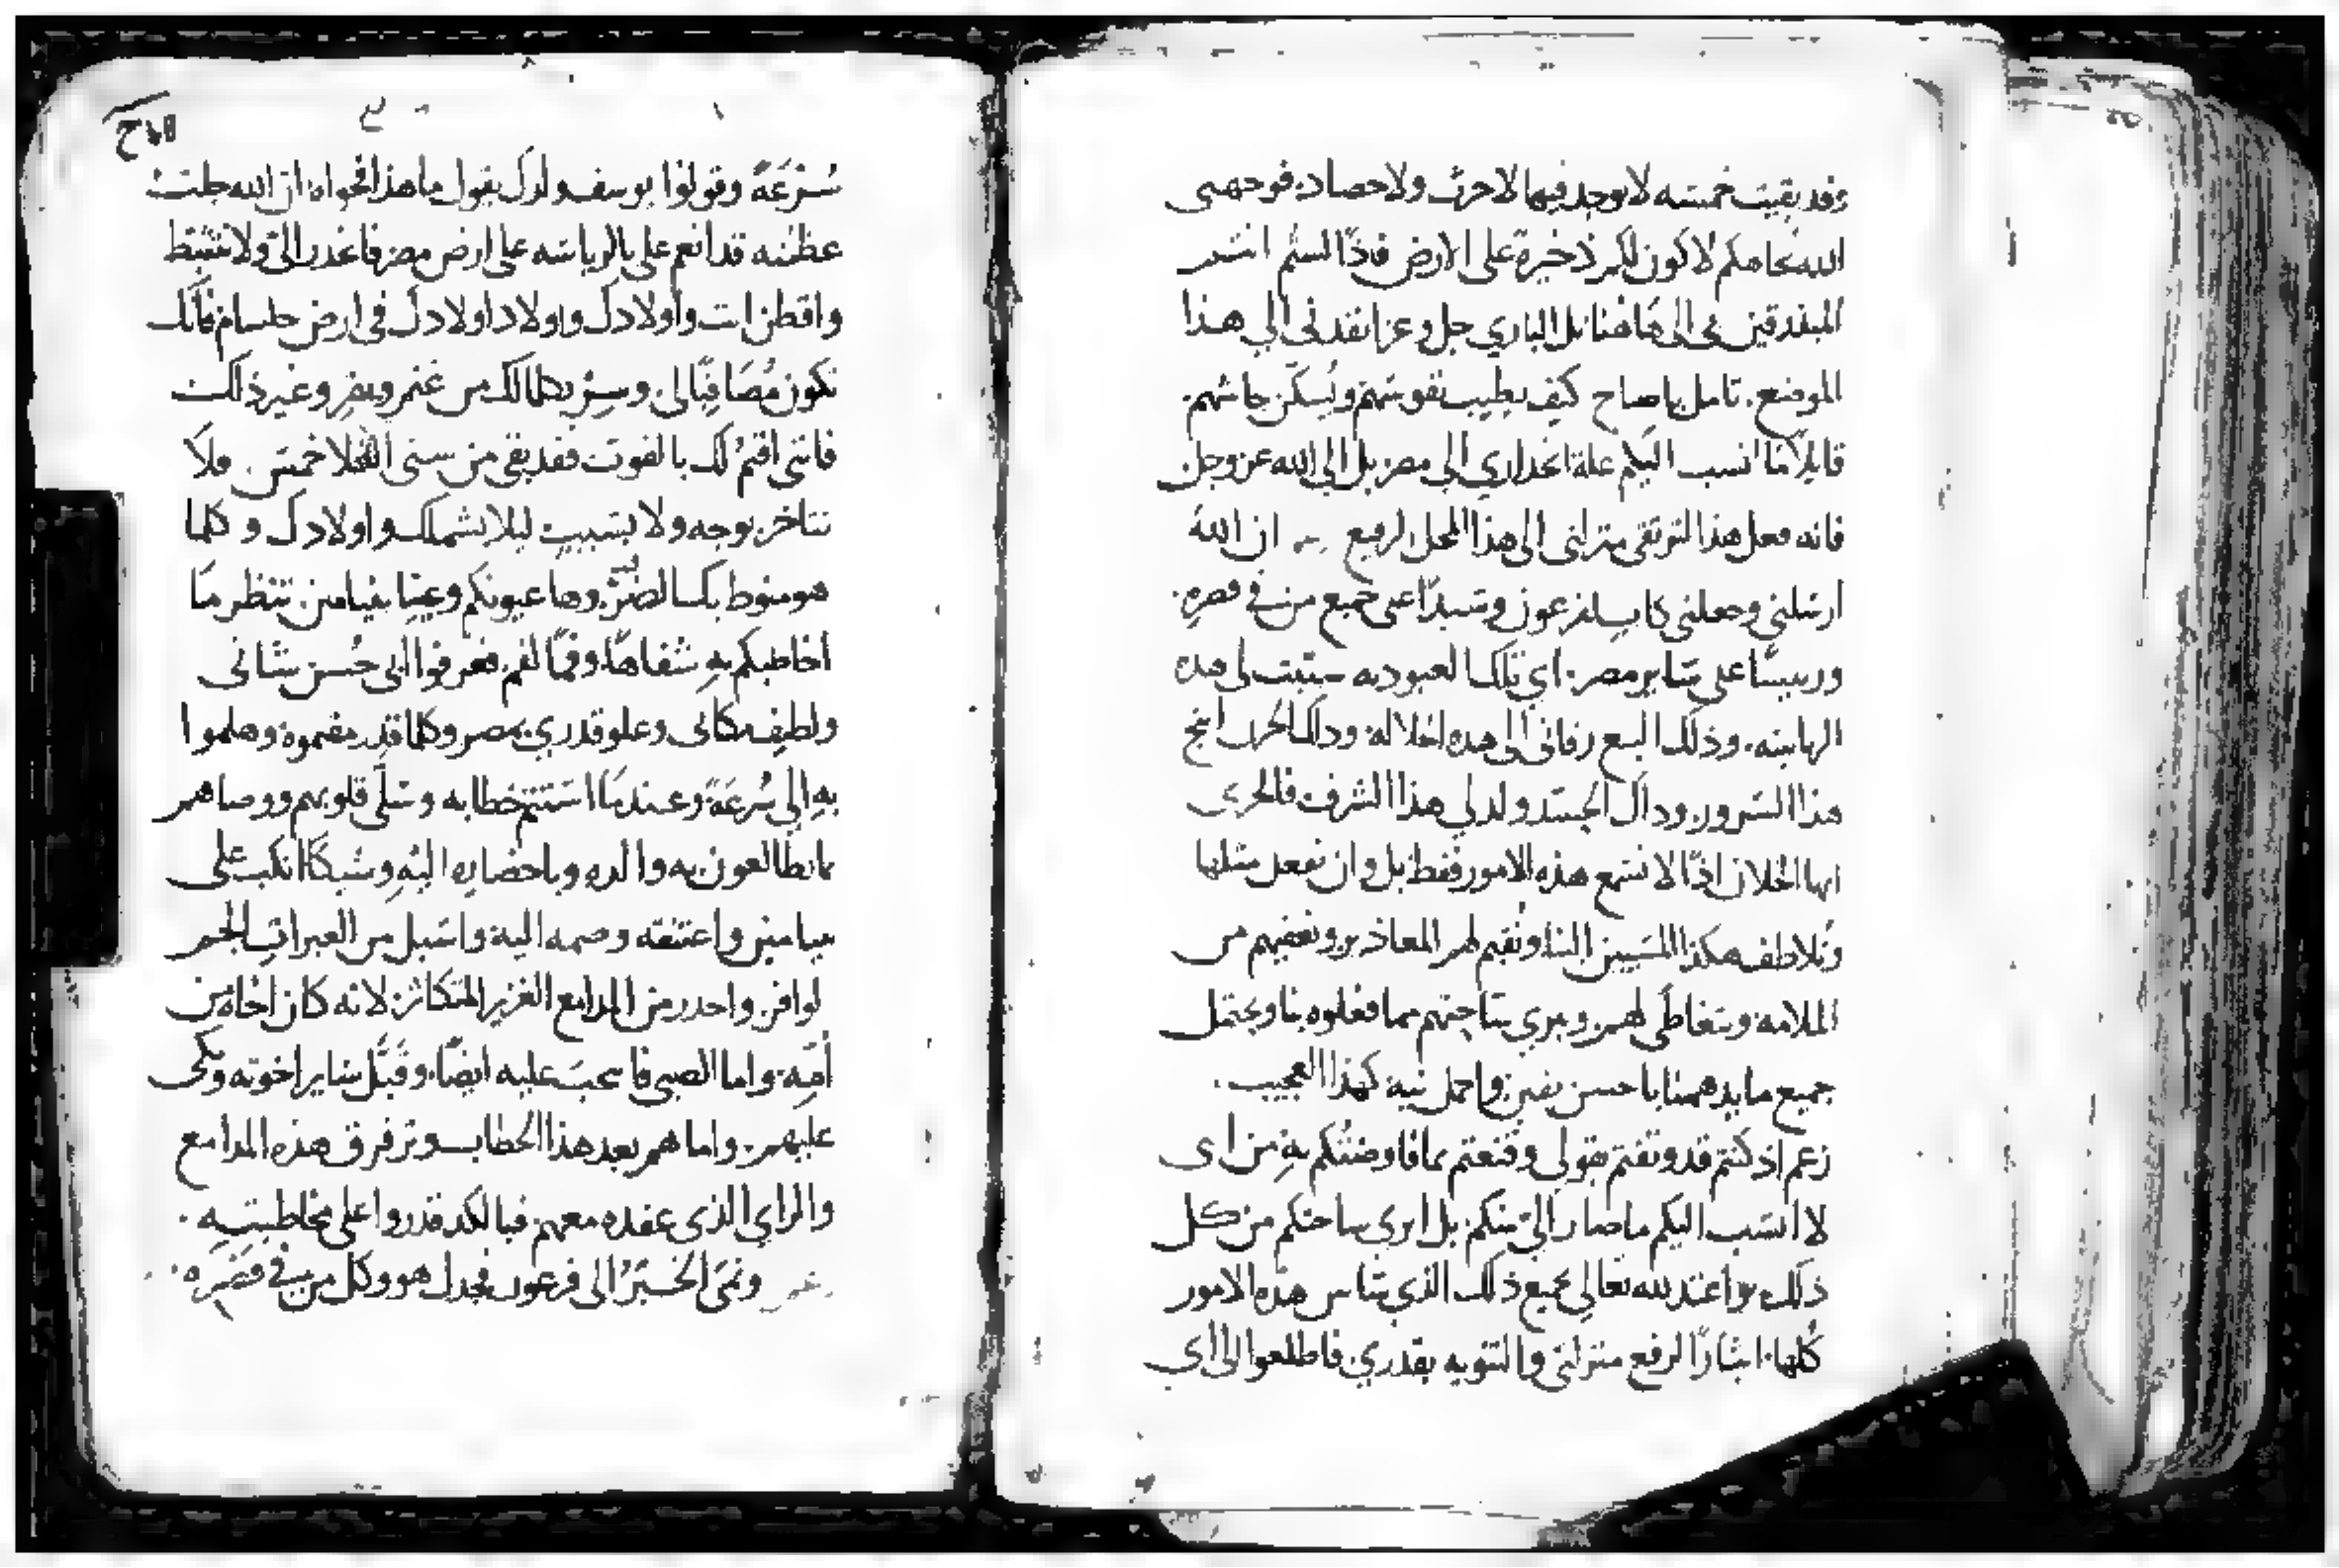 وقد بقيت خمسه لا يوجد فيها لا حرث ولا حصاد. فوجهني
الله تجاهكم لاكون لكم ذخيرة على الارض فاذًا لستم انتم
المبندقين بى الى هاهنا بل الباري جل وعز انفدنى الي هذا
الموضع. تامل ياصاح كيف يطيب نفوسهم ويُسكّن جاشهم.
قايلاً ما انسب اليكم علة انحداري الى مصر بل الي الله عز وجل
فانه فعل هذا لترتقى منزلتى الى هذا المحل الرفيع ان الله
ارسلني وجعلني كاب لفرعون وسيدًا على جميع من في قصره.
ورييسًا على ساير مصر. اي تلك العبوديه سببت لى هده
الرياسه. وذلك البيع رقانى الى هده الجلاله. وداك الحزن انتج
هذا السرور. وداك الحسد ولد لي هذا الشرف فالحرى
ايها الخلان اذًا لا نسمع هذه الامور فقط بل وان نفعل مثلها
ونُلاطف هكذا المسيين الينا ونقيم لهم المعاذير ونعفيهم من
الملامه ونتغاطى لهم ونبري ساحتهم مما فعلوه بنا ونحتمل
جميع ما يدهمنا باحسن يقين واجمل نيه كهذا العجيب.
زعم اذ كنتم قد وثقتم بقولى وقنعتم بما فاوضتكم به من اى
لا انسب اليكم ما صار الىّ منكم بل ابري ساحتكم من كل
ذلك واعتد لله تعالي بجميع ذلك الذي ساس هذه الامور
كلها. ايثارًا لرفع منزلتى والتنويه بقدري. فاطلعوا الى ابي
سُرعَةً وقولوا يوسف ولدك يقول ما هذا فحواه ان الله جلت
عظمته قد انعم على بالرياسه على ارض مصر فاغدر الىّ ولا تتثبط
واقطن انت واولادك واولاد اولادك في ارض جلسام فانك
تكون مُصَاقِبًا لى. وسِرْ بكلما لك من غنم وبقر وغير ذلك
فاننى اقيم لك بالقوت فقد بقى من سنى الغلا خمس. فلا
تتاخر بوجه ولا بسبب ليلا يشملك واولادك وكلما
هو منوط بك الضر. وها عيونكم وعينا بنيامين تنظر ما
اخاطبكم به شفاهًا وفمًا لفم. فعرفوا ابي حُسن شانى
ولطيف مكانى وعلو قدري بمصر وكلما قد رمقتموه وهلموا
به الي سُرعَة وعندما استتم خطابه وسلّى قلوبهم ووصاهم
بانطالعون به والده وباحضاره اليه وشيكًا انكب على
بنيامين واعتنقه وضمه اليه واسبل من العبرات الجم
لوافر. واحدر من المدامع الغزير المتكاثر. لانه كان اخاه من
أمّه. واما الصبي فانحب عليه ايضًا. وقَبَّل ساير اخوته وبكى
عليهم. واما هم بعد هذا الخطاب وترفرق هذه المدامع
والراي الذى عقده معهم فبالكد قدروا على مخاطبته.
ونمَى الخَبَرُ الى فرعون فجدل هو وكل من في قصره.